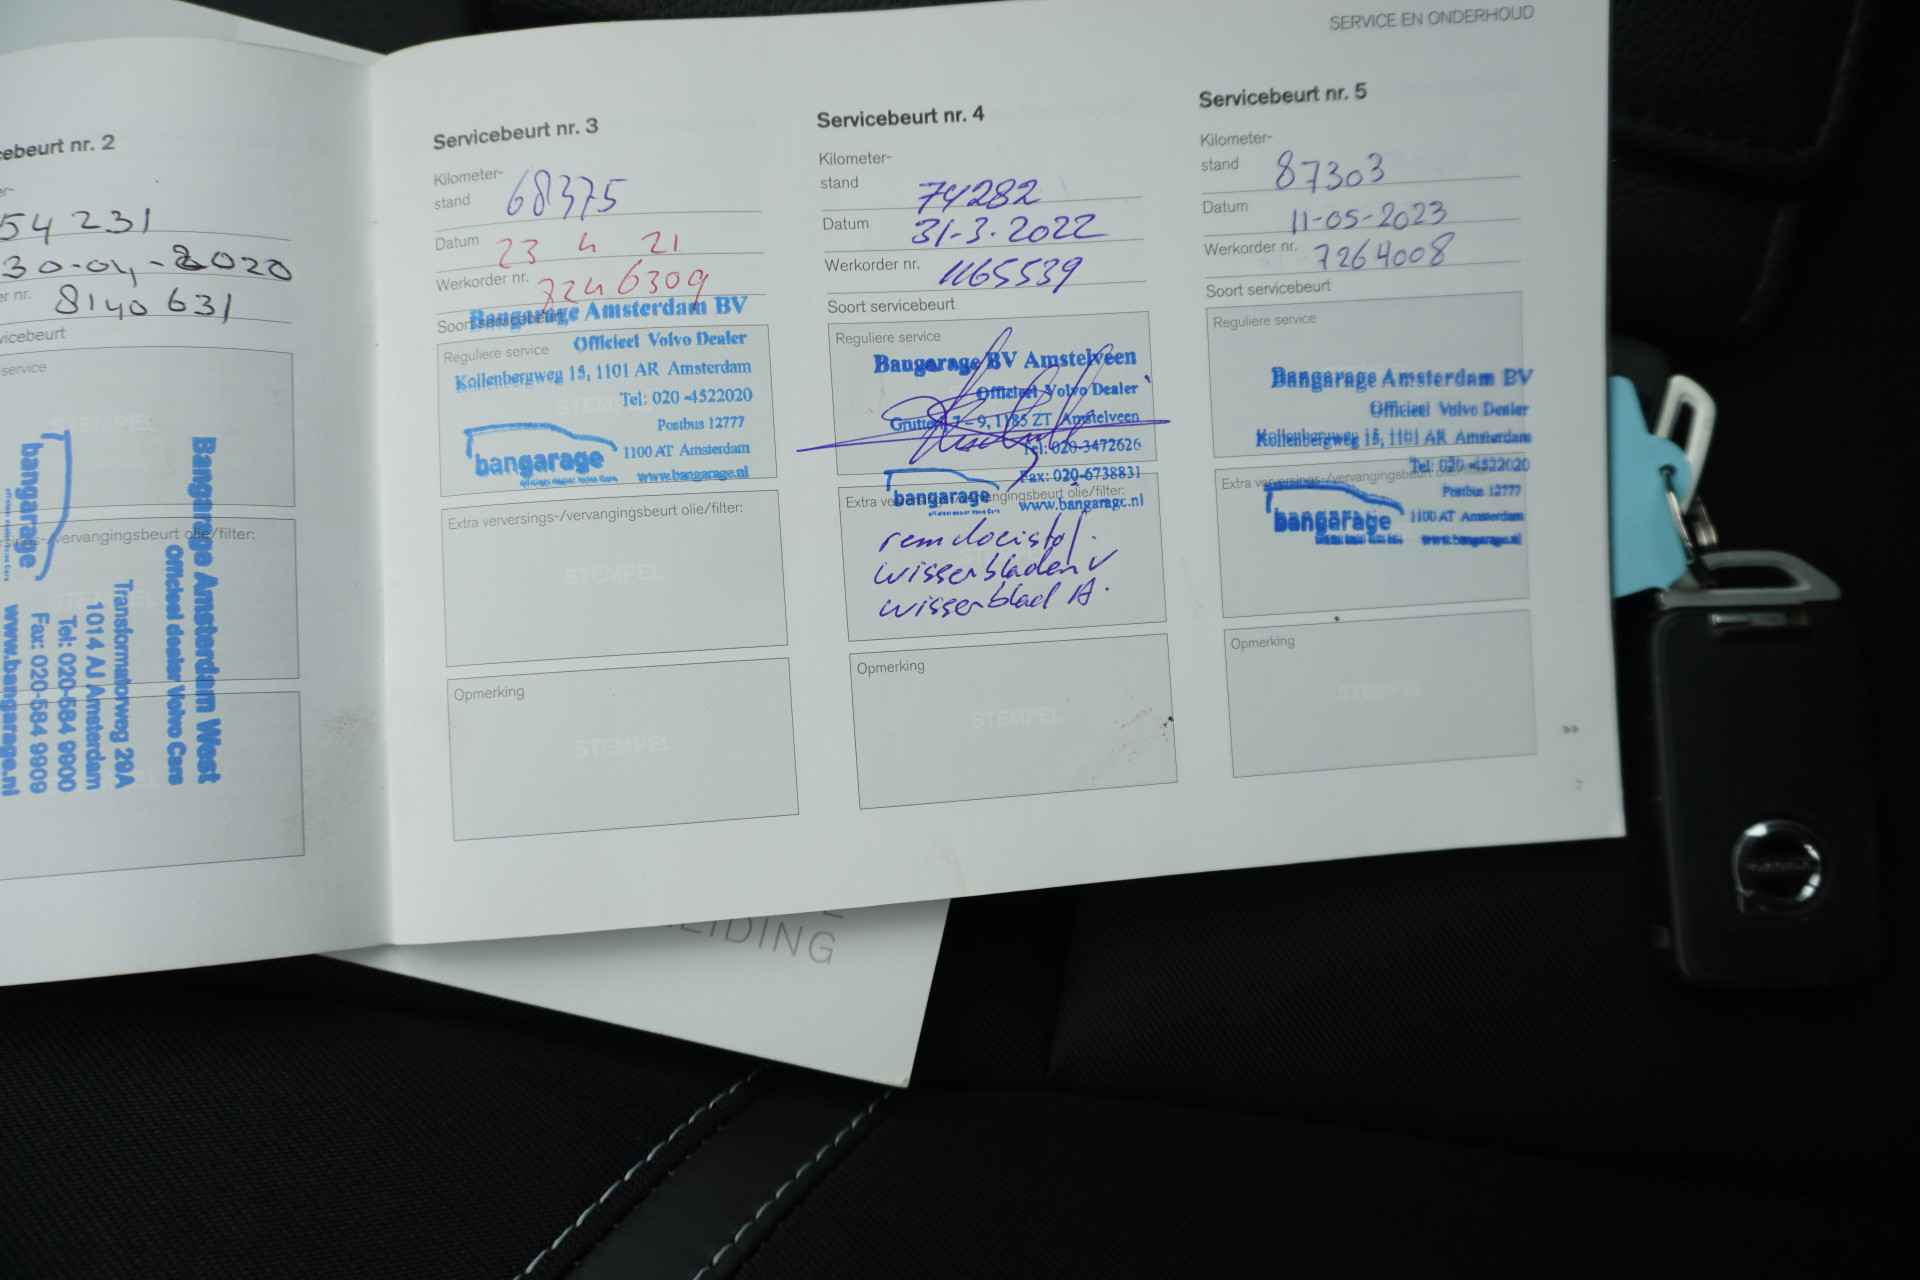 SERVICE EN ONDERHOUD
cebeurt nr. 2
54 231
30-04-2020
er nr.
8140 631
vicebeurt
service
vervangingsbeurt olie/filter:
Bangarage Amsterdam West
Officieel dealer Volvo Cars
Transformatorweg 29A
1014 AJ Amsterdam
Tel: 020-684 9900
Fax: 020-684 9909
www.bangarage.nl
bangarage
Servicebeurt nr. 3
Kilometer-
stand 68375
Datum 23 4 21
Werkorder nr. 7246309
Soort servicebeurt
Bangarage Amsterdam BV
Reguliere service
Officieel Volvo Dealer
Kollenbergweg 15, 1101 AR Amsterdam
Tel: 020-4522020
Postbus 12777
1100 AT Amsterdam
bangarage
www.bangarage.nl
Extra verversings-/vervangingsbeurt olie/filter:
STEMPEL
Opmerking
STEMPEL
Servicebeurt nr. 4
Kilometer-
stand 74282
Datum 31-3-2022
Werkorder nr. 1165539
Soort servicebeurt
Reguliere service
Bangarage BV Amstelveen
Officieel Volvo Dealer
7-9, 1185 ZT Amstelveen
Tel: 020-3472626
Fax: 020-6738831
bangarage
www.bangarage.nl
Extra vervangingsbeurt olie/filter:
remvloeistof.
wisserbladen v
wisserblad A.
Opmerking
STEMPEL
Servicebeurt nr. 5
Kilometer-
stand 87303
Datum 11-05-2023
Werkorder nr. 7264008
Soort servicebeurt
Reguliere service
Bangarage Amsterdam BV
Officieel Volvo Dealer
Kollenbergweg 15, 1101 AR Amsterdam
Tel: 020-4522020
Extra verversings-/vervangingsbeurt
Postbus 12777
1100 AT Amsterdam
bangarage
www.bangarage.nl
Opmerking
STEMPEL
LEIDING